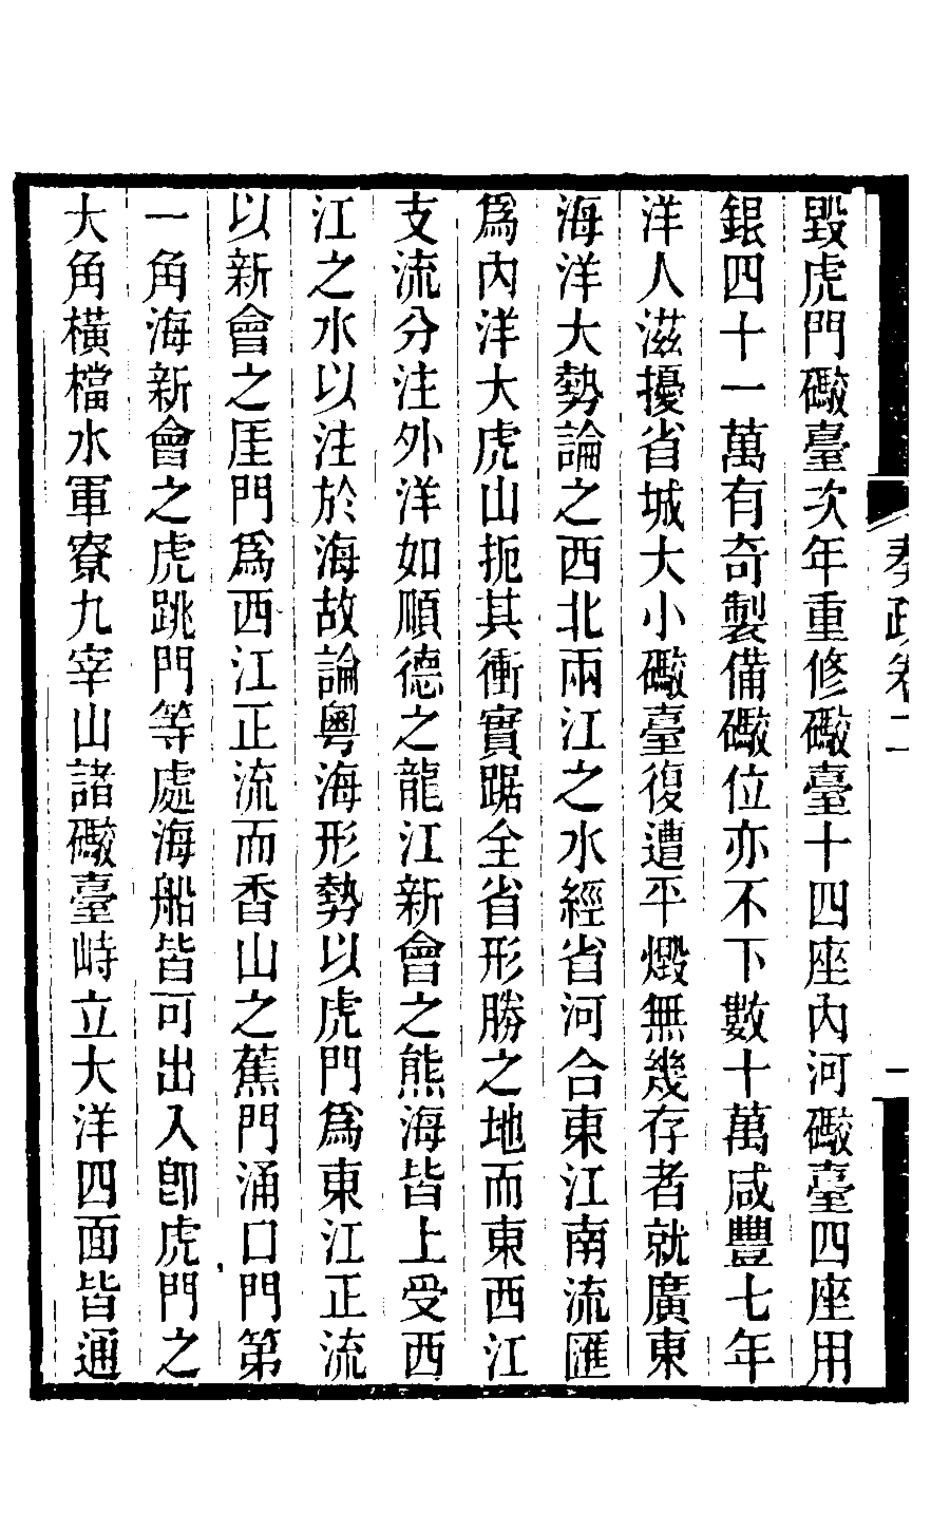 奏疏卷二
一
毀虎門礮臺次年重修礮臺十四座內河礮臺四座用
銀四十一萬有奇製備礮位亦不下數十萬咸豐七年
洋人滋擾省城大小礮臺復遭平燬無幾存者就廣東
海洋大勢論之西北兩江之水經省河合東江南流匯
爲內洋大虎山扼其衝實踞全省形勝之地而東西江
支流分注外洋如順德之龍江新會之熊海皆上受西
江之水以注於海故論粵海形勢以虎門爲東江正流
以新會之厓門爲西江正流而香山之蕉門涌口門第
一角海新會之虎跳門等處海船皆可出入卽虎門之
大角橫檔水軍寮九宰山諸礮臺峙立大洋四面皆通